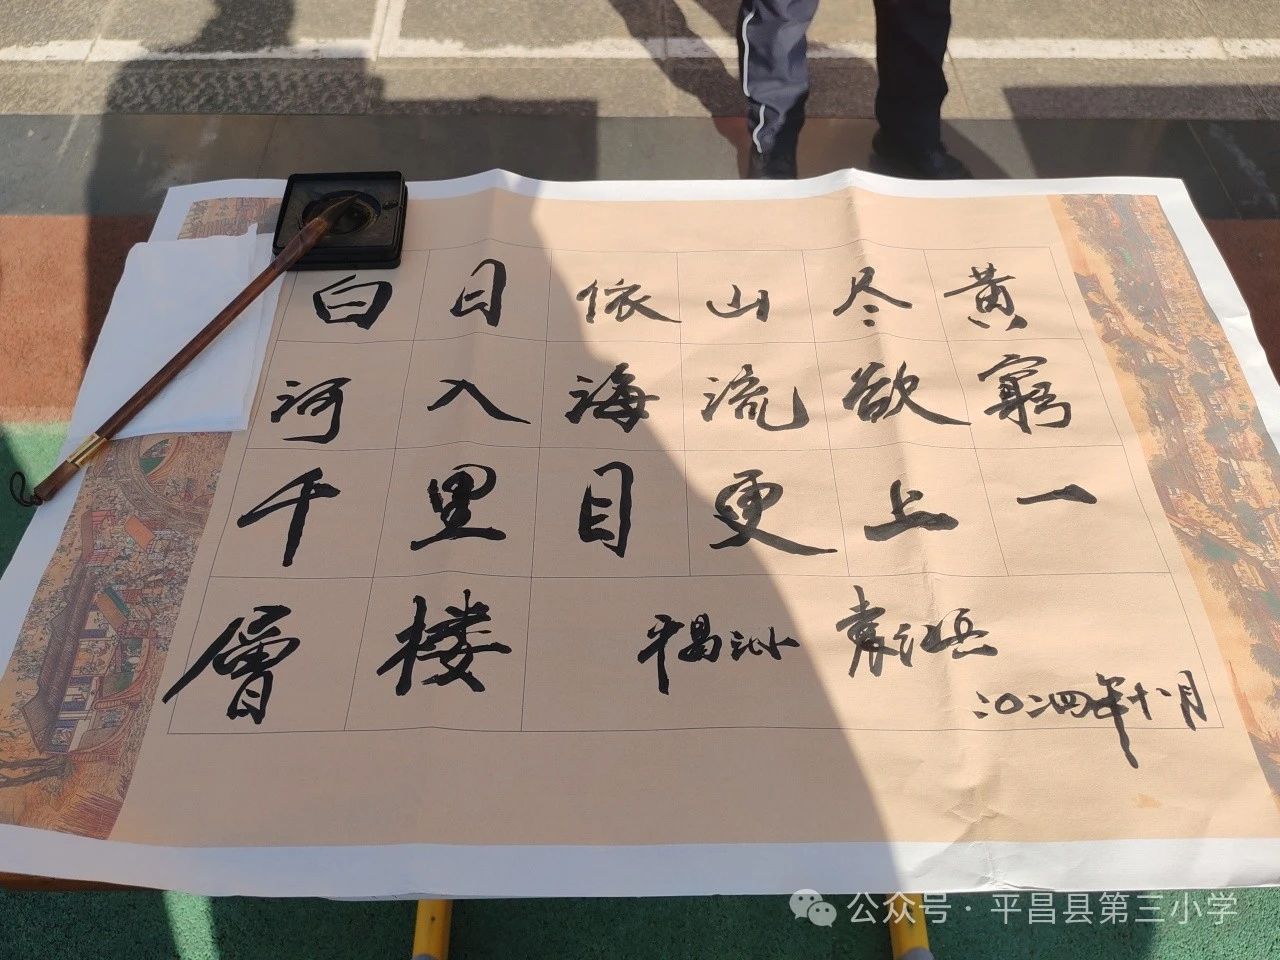 白日依山尽黄
河入海流欲穷
千里目更上一
層楼
二〇二四年十一月
公众号·平昌县第三小学